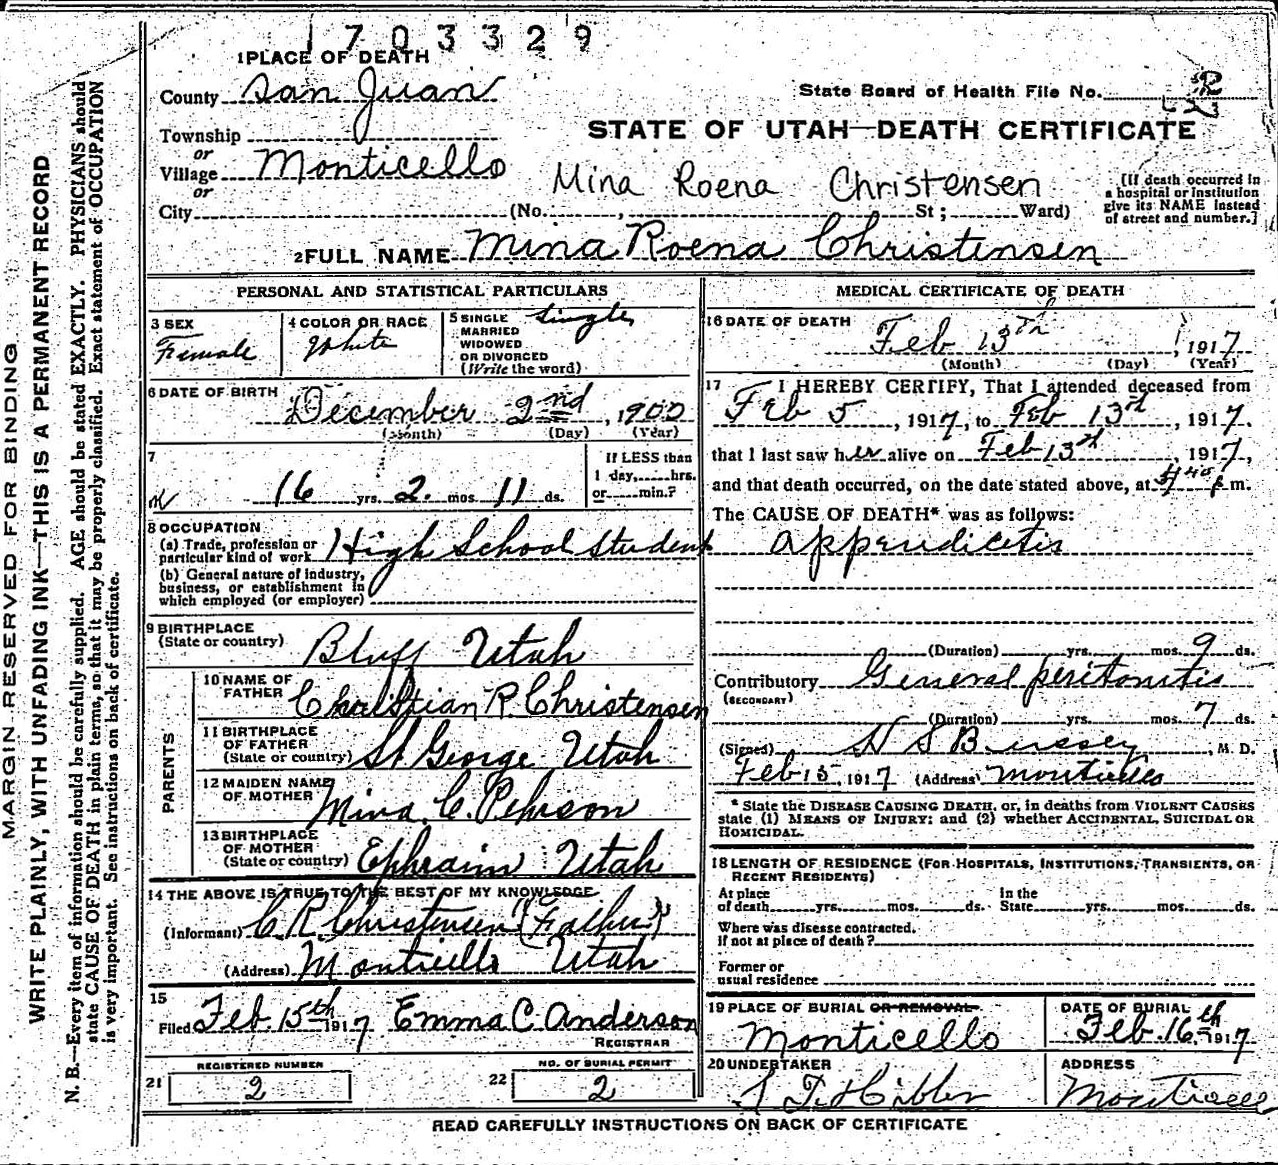 1703329
1 PLACE OF DEATH
County San Juan
State Board of Health File No. 2
Township
STATE OF UTAH—DEATH CERTIFICATE
or
Village Monticello
Mina Roena Christensen
or
City (No. , St; Ward)
[If death occurred in
a hospital or institution
give its NAME instead
of street and number.]
2 FULL NAME Mina Roena Christensen
PERSONAL AND STATISTICAL PARTICULARS
3 SEX
Female
4 COLOR OR RACE
White
5 SINGLE
MARRIED
WIDOWED
OR DIVORCED
(Write the word)
Single
6 DATE OF BIRTH
December 2nd, 1900
(Month) (Day) (Year)
7
16 yrs. 2 mos 11 ds.
If LESS than
1 day, hrs.
or min.?
8 OCCUPATION
(a) Trade, profession or
particular kind of work High School Student
(b) General nature of industry,
business, or establishment in
which employed (or employer)
9 BIRTHPLACE
(State or country) Bluff Utah
PARENTS
10 NAME OF
FATHER Christian R. Christensen
11 BIRTHPLACE
OF FATHER
(State or country) St George Utah
12 MAIDEN NAME
OF MOTHER Mina. C. Pehrson
13 BIRTHPLACE
OF MOTHER
(State or country) Ephraim Utah
14 THE ABOVE IS TRUE TO THE BEST OF MY KNOWLEDGE
(Informant) C R Christensen (Father)
(Address) Monticello Utah
15
Filed Feb. 15th 1917 Emma C. Anderson
REGISTRAR
REGISTERED NUMBER
21 2
NO. OF BURIAL PERMIT
22 2
MEDICAL CERTIFICATE OF DEATH
16 DATE OF DEATH
Feb 13th, 1917
(Month) (Day) (Year)
17 I HEREBY CERTIFY, That I attended deceased from
Feb 5, 1917, to Feb 13th, 1917.
that I last saw her alive on Feb 13th, 1917,
and that death occurred, on the date stated above, at p m.
The CAUSE OF DEATH* was as follows:
appendicitis
(Duration) yrs. mos. 9 ds.
Contributory General peritonitis
(SECONDARY)
(Duration) yrs. mos. 7 ds.
(Signed) , M. D.
Feb 15, 1917 (Address) Monticello
* State the DISEASE CAUSING DEATH, or, in deaths from VIOLENT CAUSES
state (1) MEANS OF INJURY; and (2) whether ACCIDENTAL, SUICIDAL OR
HOMICIDAL.
18 LENGTH OF RESIDENCE (FOR HOSPITALS, INSTITUTIONS, TRANSIENTS, OR
RECENT RESIDENTS)
At place
of death yrs. mos. ds.
In the
State yrs. mos. ds.
Where was disease contracted,
if not at place of death?
Former or
usual residence
19 PLACE OF BURIAL OR REMOVAL
Monticello
DATE OF BURIAL
Feb. 16th 1917
20 UNDERTAKER
ADDRESS
Monticello
READ CAREFULLY INSTRUCTIONS ON BACK OF CERTIFICATE
MARGIN RESERVED FOR BINDING
WRITE PLAINLY, WITH UNFADING INK—THIS IS A PERMANENT RECORD
N. B.—Every item of information should be carefully supplied. AGE should be stated EXACTLY. PHYSICIANS should
state CAUSE OF DEATH in plain terms, so that it may be properly classified. Exact statement of OCCUPATION
is very important. See instructions on back of certificate.